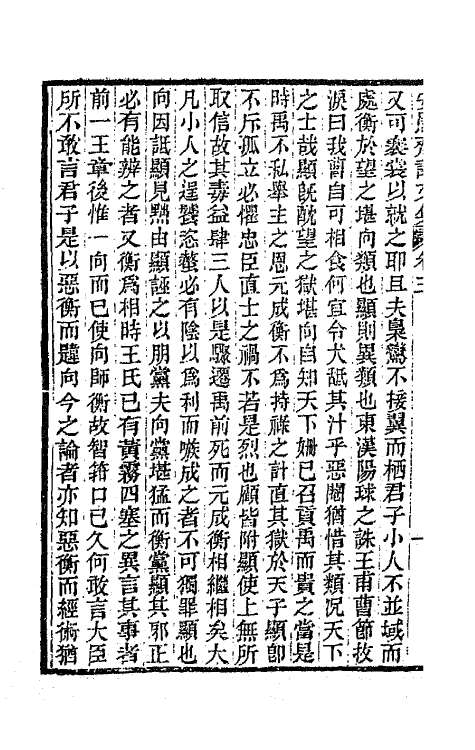 又可褰裳以就之耶且夫梟鸞不接翼而栖君子小人不並域而
處衡於望之堪向類也顯則異類也東漢陽球之誅王甫曹節抆
淚曰我曹自可相食何宜令犬舐其汁乎惡閹猶惜其類況天下
之士哉顯既酖望之獄堪向自知天下姍已召貢禹而貴之當是
時禹不私舉主之恩元成衡不爲持祿之計直其獄於天子顯卽
不斥孤立必懼忠臣直士之禍不若是烈也顧皆附顯使上無所
取信故其毒益肆三人以是驟遷禹前死而元成衡相繼相矣大
凡小人之逞饕恣螫必有陰以爲利而嗾成之者不可獨罪顯也
向因詆顯見黜由顯誣之以朋黨夫向黨堪猛而衡黨顯其邪正
必有能辨之者又衡爲相時王氏已有黃霧四塞之異言其事者
前一王章後惟一向而已使向師衡故智籍口已久何敢言大臣
所不敢言君子是以惡衡而韙向今之論者亦知惡衡而經術猶